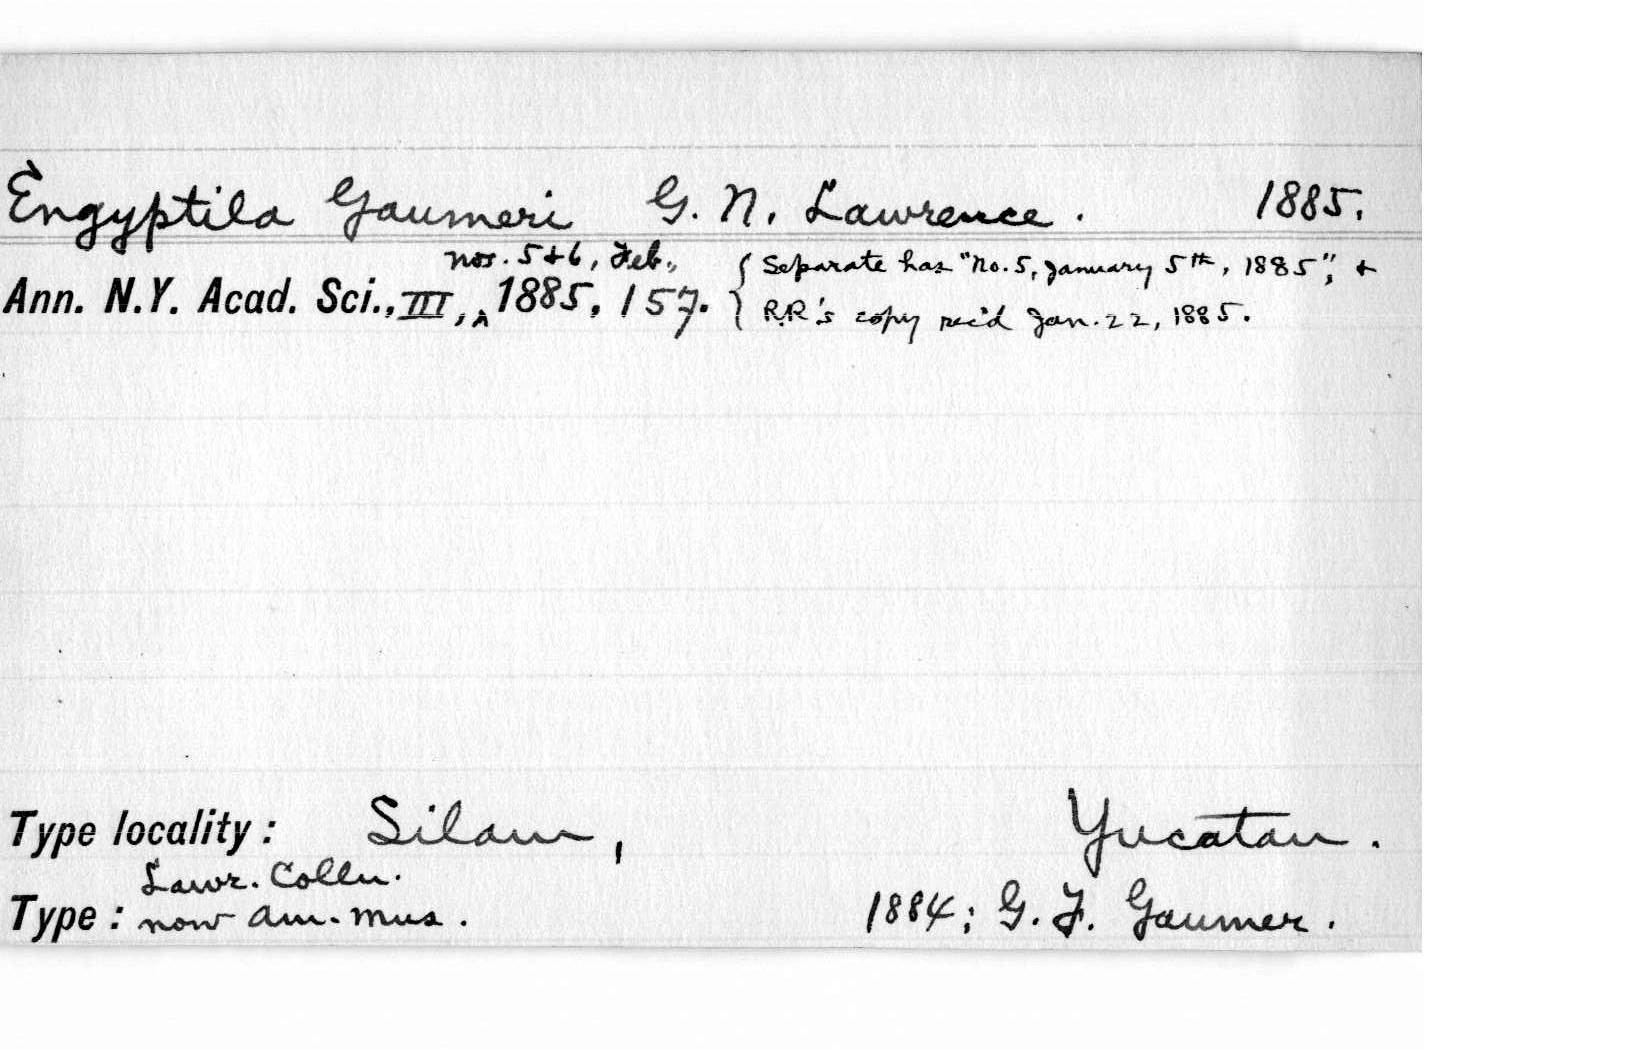 Engyptila Gaumeri G. N. Lawrence. 1885.
nos. 5 + 6, Feb.,
Ann. N.Y. Acad. Sci., III, ^ 1885, 157. { Separate has "No. 5, January 5th, 1885", +
R.R's copy rec'd Jan. 22, 1885.
Type locality: Silam, Yucatan.
Lawr. Colln.
Type: now Am. Mus. 1884; G. F. Gaumer.